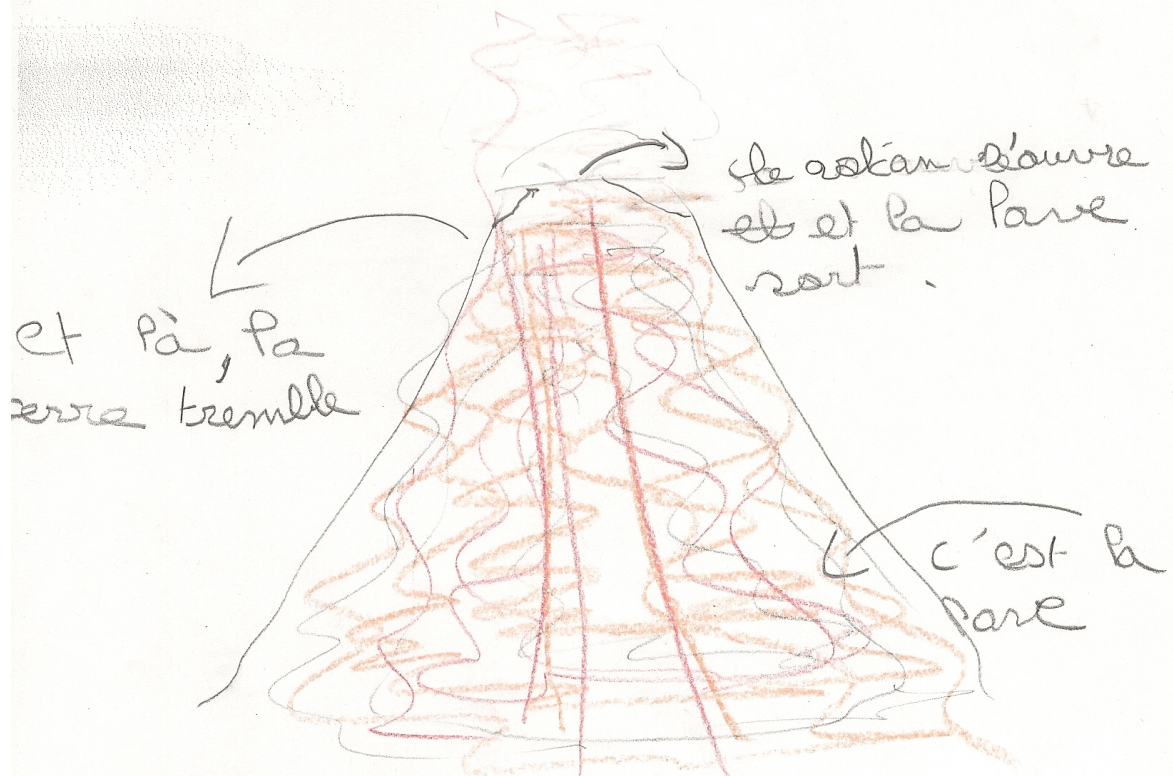 le volcan s'ouvre
et et la lave
sort .
et là, la
terre tremble
c'est la
lave